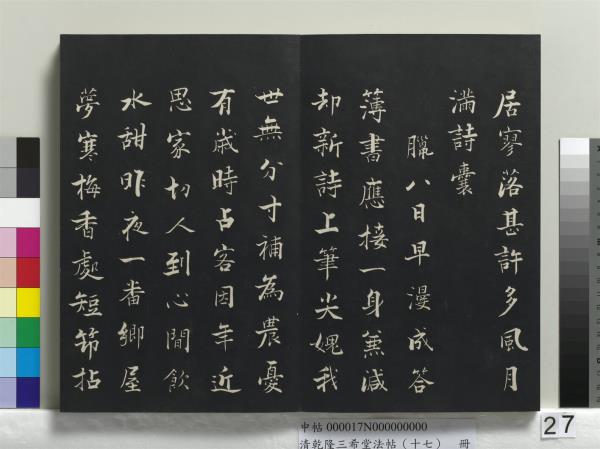 居寥落甚許多風月
滿詩囊
臘八日早漫成答
薄書應接一身兼減
却新詩上筆尖娓我
世無分寸補為農憂
有歲時占客因年近
思家切人到心閒飲
水甜昨夜一番鄉屋
夢寒梅香處短節拈
申帖 000017N000000000
清乾隆三希堂法帖(十七) 冊
27